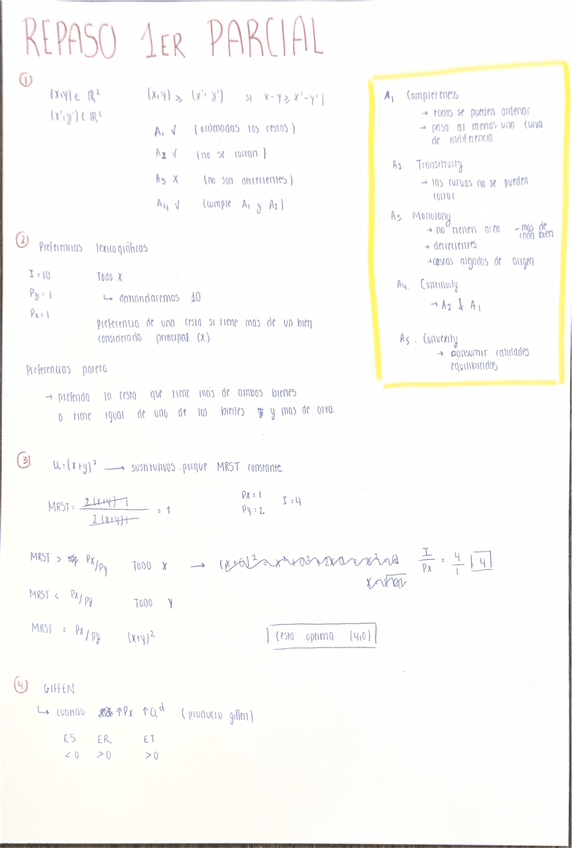 REPASO 1ER PARCIAL
①
(x,y) ∈ ℝ² (x,y) ≥ (x',y') si x-y ≥ x'-y'
(x',y') ∈ ℝ²
A₁ ✓ (ordenadas las cestas)
A₂ ✓ (no se cortan)
A₃ X (no son decrecientes)
A₄ ✓ (cumple A₁ y A₂)
A₁ Completeness
→ todas se pueden ordenar
→ pasa al menos una curva
de indiferencia
A₂ Transitivity
→ las curvas no se pueden
cortar
A₃ Monotony
→ no tienen - más de
cada bien
→ decrecientes
→ cestas alejadas de origen
A₄ Continuity
→ A₂ & A₁
A₅ Convexity
→ consumir cantidades
equilibradas
② Preferencias lexicográficas
I = 10 Todo X
Py = 1 ↳ demandaremos 10
Px = 1
Preferencia de una cesta si tiene más de un bien
considerado principal (x)
Preferencias pareto
→ prefiero la cesta que tiene más de ambos bienes
o tiene igual de uno de los bienes y más de otro.
③ u = (x+y)² → sustitutivos porque MRST constante.
MRST = 2(x+y)·1 / 2(x+y)·1 = 1
Px = 1 I = 4
Py = 2
MRST > Px/Py TODO X → I/Px = 4/1 = 4
MRST < Px/Py TODO Y
MRST = Px/Py (x+y)²
Cesta optima (4,0)
④ GIFFEN
↳ cuando ↑Px ↑Qᵈ (producto giffen)
ES ER ET
<0 >0 >0